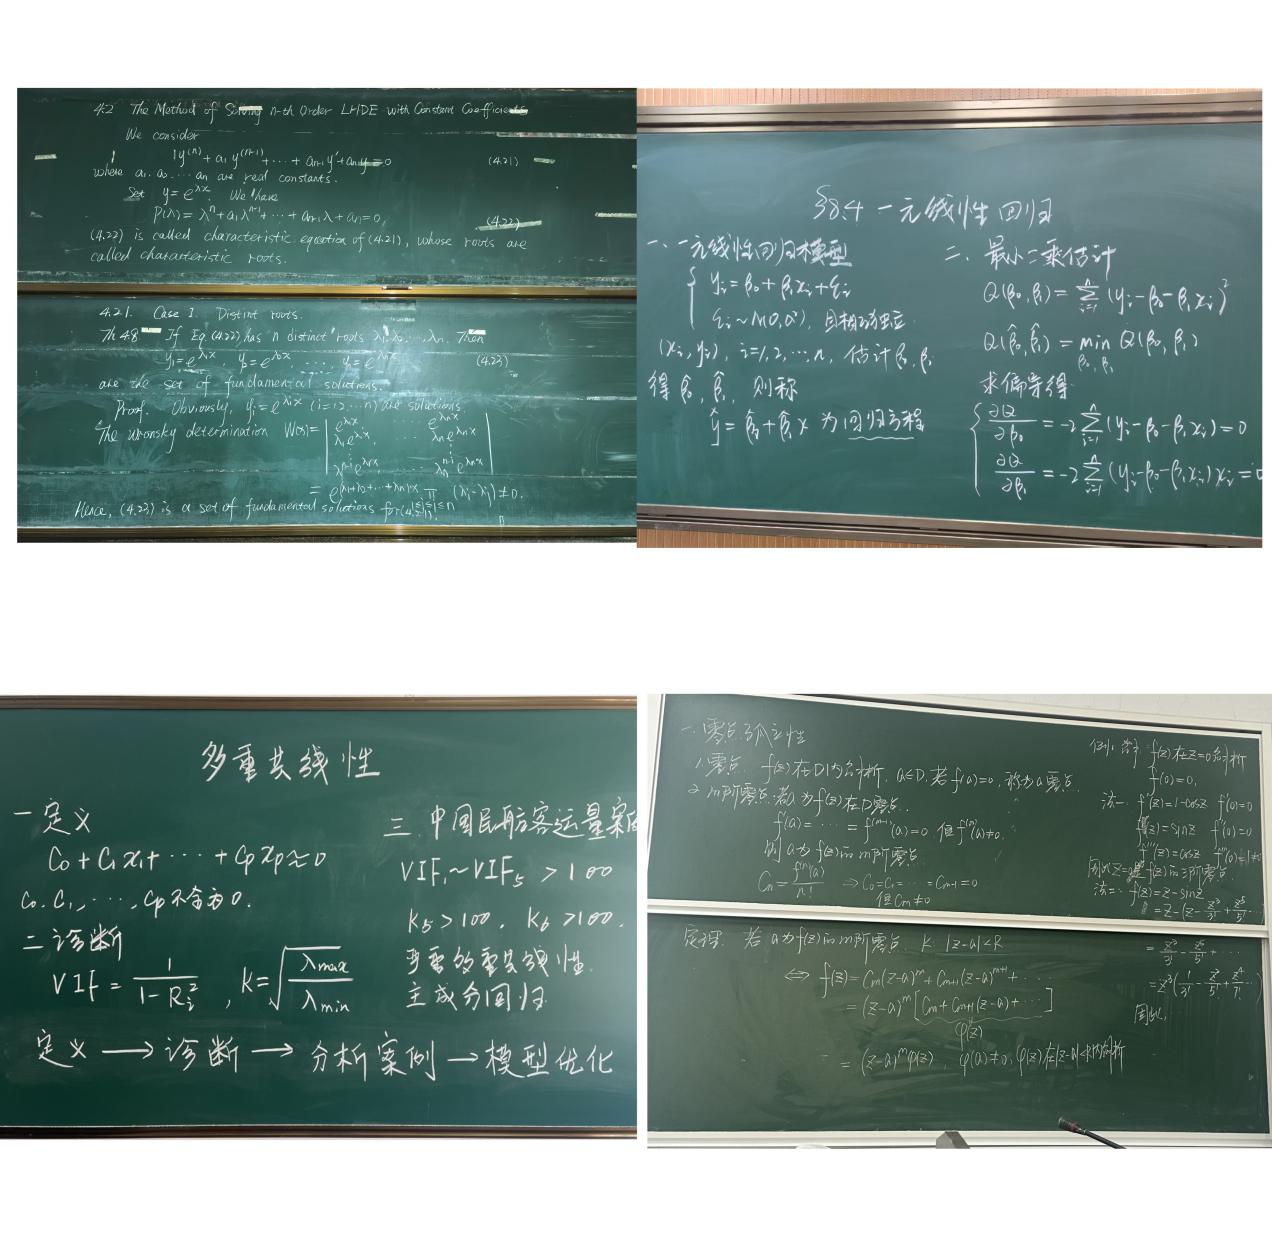 4.2 The Method of Solving n-th Order LHDE with Constant Coefficients
We consider
y⁽ⁿ⁾ + a₁y⁽ⁿ⁻¹⁾ + ⋯ + aₙ₋₁y' + aₙy = 0 (4.21)
where a₁. a₂. ⋯ aₙ are real constants.
Set y = e^{λx}. We have
P(λ) = λⁿ + a₁λⁿ⁻¹ + ⋯ + aₙ₋₁λ + aₙ = 0, (4.22)
(4.22) is called characteristic equation of (4.21), whose roots are
called characteristic roots.
4.2.1. Case I. Distint roots.
Th 4.8 If Eq. (4.22) has n distinct roots λ₁. λ₂. ⋯, λₙ. Then
y₁ = e^{λ₁x} y₂ = e^{λ₂x} ⋯, yₙ = e^{λₙx} (4.23)
are the set of fundamental solutions.
Proof. Obviously, yᵢ = e^{λᵢx} (i=1,2,⋯n) are solutions.
The wronsky determination W(x) = | e^{λ₁x} ⋯ e^{λₙx}
λ₁e^{λ₁x}, ⋯ λₙe^{λₙx}
⋮ ⋮
λ₁ⁿ⁻¹e^{λ₁x} ⋯ λₙⁿ⁻¹e^{λₙx} |
= e^{(λ₁+λ₂+⋯+λₙ)x} Π (λᵢ-λⱼ) ≠ 0.
Hence, (4.23) is a set of fundamental solutions for (4.21).
§8.4 一元线性回归
一、一元线性回归模型
{ yᵢ = β₀ + β₁xᵢ + εᵢ
εᵢ ~ N(0,σ²), 且相互独立
(xᵢ, yᵢ), i=1,2,⋯,n, 估计β₀,β₁
得 β̂₀, β̂₁, 则称
ŷ = β̂₀ + β̂₁x 为回归方程
二、最小二乘估计
Q(β₀,β₁) = Σⁿᵢ₌₁ (yᵢ-β₀-β₁xᵢ)²
Q(β̂₀,β̂₁) = min_{β₀,β₁} Q(β₀,β₁)
求偏导得
{ ∂Q/∂β₀ = -2 Σⁿᵢ₌₁ (yᵢ-β₀-β₁xᵢ) = 0
∂Q/∂β₁ = -2 Σⁿᵢ₌₁ (yᵢ-β₀-β₁xᵢ)xᵢ = 0
多重共线性
一 定义
C₀ + C₁x₁ + ⋯ + Cₚxₚ ≈ 0
C₀. C₁, ⋯, Cₚ 不全为0.
二 诊断
VIF = 1/(1-Rᵢ²), K = √(λmax/λmin)
三 中国民航客运量案例
VIF₁ ~ VIF₅ > 100
K₅ > 100, K₆ > 100,
严重多重共线性.
主成分回归
定义 → 诊断 → 分析案例 → 模型优化
一. 零点孤立性
1. 零点. f(z)在D内解析, a∈D, 若f(a)=0, 称为a零点
2. m阶零点: 若a为f(z)在D零点.
f'(a) = ⋯ = f⁽ᵐ⁻¹⁾(a) = 0, 但f⁽ᵐ⁾(a) ≠ 0.
则a为f(z)的m阶零点
Cₙ = f⁽ⁿ⁾(a)/n! ⇒ C₀ = C₁ = ⋯ = Cₘ₋₁ = 0
但Cₘ ≠ 0
定理. 若a为f(z)的m阶零点. K: |z-a|<R
⇔ f(z) = Cₘ(z-a)ᵐ + Cₘ₊₁(z-a)ᵐ⁺¹ + ⋯
= (z-a)ᵐ [Cₘ + Cₘ₊₁(z-a) + ⋯]
φ(z)
= (z-a)ᵐφ(z), φ(a)≠0, φ(z)在|z-a|<R内解析
f(z)在z=0解析
f(0)=0,
法一. f'(z)=1-cosz f'(0)=0
f''(z)=sinz f''(0)=0
f'''(z)=cosz f'''(0)=1≠0
因此z=0是f(z)的三阶零点.
法二. f(z)=z-sinz
= z-(z-z³/3!+z⁵/5!⋯)
= z³/3! - z⁵/5! + ⋯
= z³(1/3! - z²/5! + z⁴/7! ⋯)
因此,